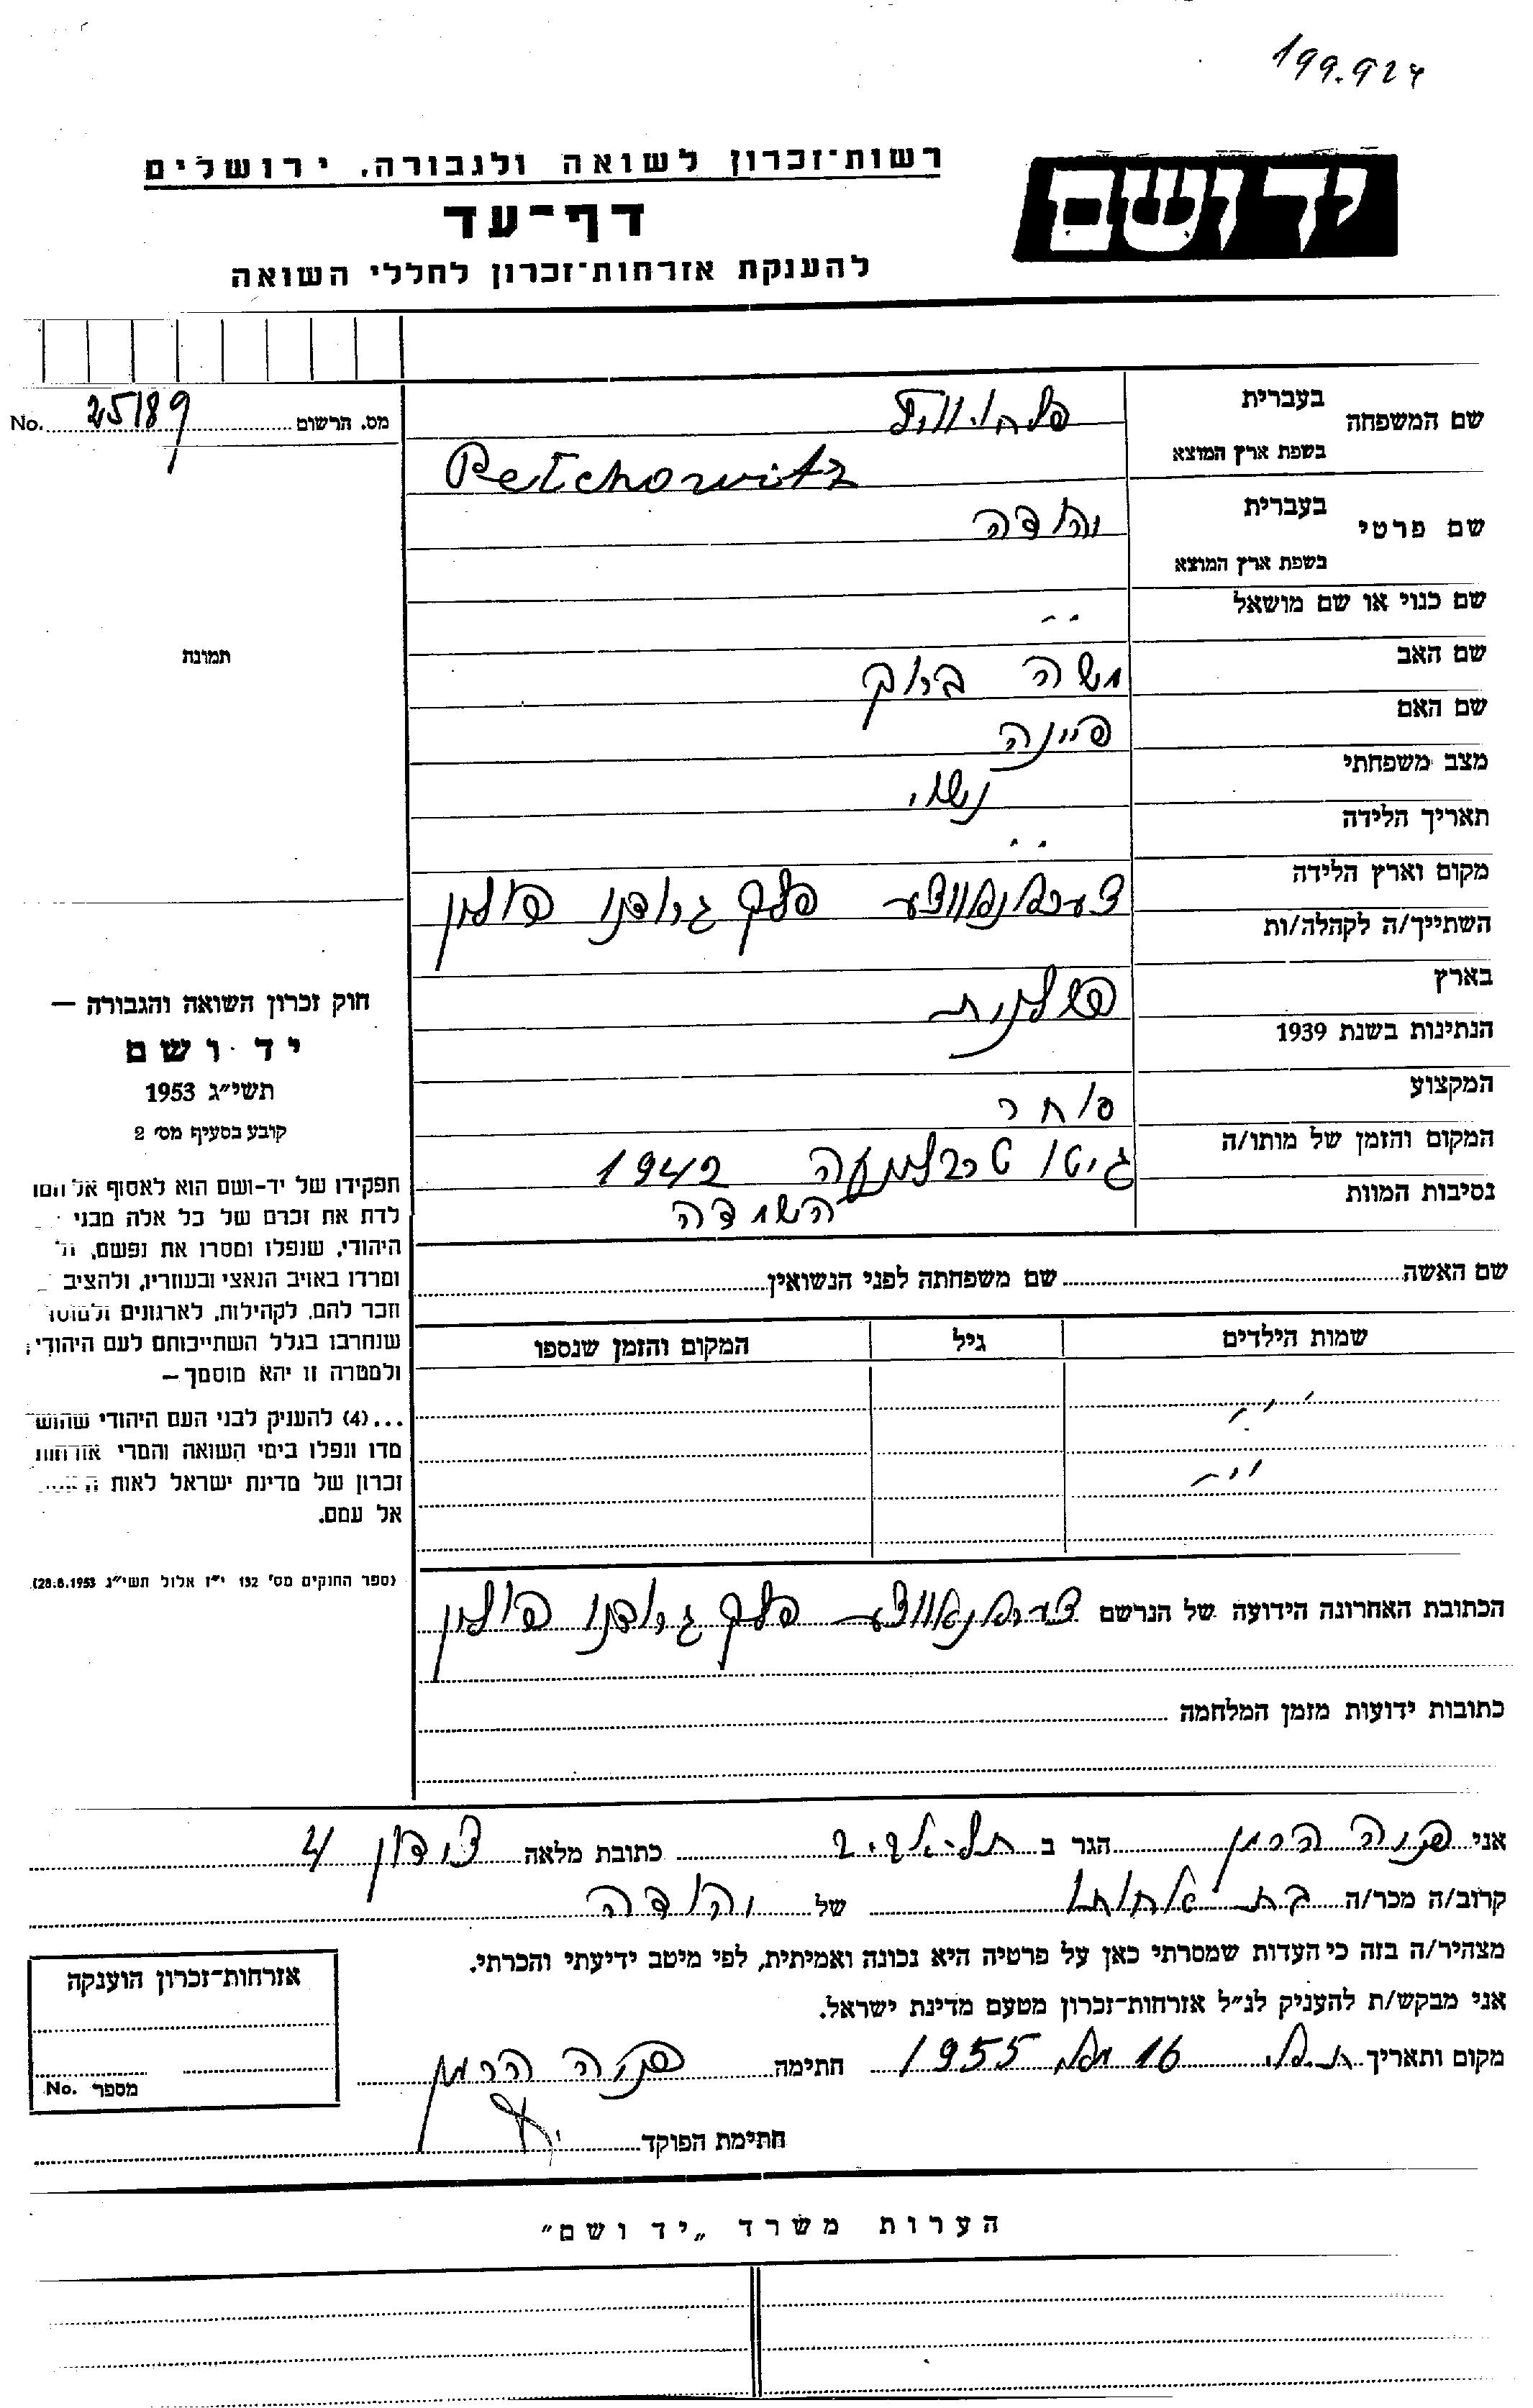 199.924
רשות־זכרון לשואה ולגבורה, ירושלים
יד ושם
דף־עד
להענקת אזרחות־זכרון לחללי השואה
שם המשפחה
בעברית
בשפת ארץ המוצא
Petchorwitz
מס. הרשום 25189 No.
שם פרטי
בעברית יהודה
בשפת ארץ המוצא
שם כנוי או שם מושאל
תמונה
שם האב משה ברוך
שם האם פיינה
מצב משפחתי נשוי
תאריך הלידה
מקום וארץ הלידה פלך גרודנו פולין
השתייך/ה לקהלה/ות
בארץ
הנתינות בשנת 1939 פולנית
המקצוע סוחר
המקום והזמן של מותו/ה גיטו 1942
נסיבות המוות השמדה
חוק זכרון השואה והגבורה —
יד ושם
תשי״ג 1953
קובע בסעיף מס׳ 2
תפקידו של יד-ושם הוא לאסוף אל
לדת את זכרם של כל אלה מבני
היהודי, שנפלו ומסרו את נפשם,
ומרדו באויב הנאצי ובעוזריו, ולהציב
וזכר להם, לקהילות, לארגונים
שנחרבו בגלל השתייכותם לעם היהודי;
ולמטרה זו יהא מוסמך —
...(4) להעניק לבני העם היהודי
מדו ונפלו בימי השואה והמרי אזרחות
זכרון של מדינת ישראל לאות
אל עמם.
(ספר החוקים מס׳ 132 י״ז אלול תשי״ג 28.8.1953)
שם האשה שם משפחתה לפני הנשואין
שמות הילדים גיל המקום והזמן שנספו
הכתובת האחרונה הידועה של הנרשם פלך גרודנו פולין
כתובות ידועות מזמן המלחמה
אני פניה הרמן הגר ב תל-אביב כתובת מלאה 4
קרוב/ה מכר/ה בת אחותו של יהודה
מצהיר/ה בזה כי העדות שמסרתי כאן על פרטיה היא נכונה ואמיתית, לפי מיטב ידיעתי והכרתי.
אני מבקש/ת להעניק לנ״ל אזרחות־זכרון מטעם מדינת ישראל.
מקום ותאריך 16 1955 חתימה פניה הרמן
חתימת הפוקד
אזרחות־זכרון הוענקה
מספר No.
הערות משרד „יד ושם״